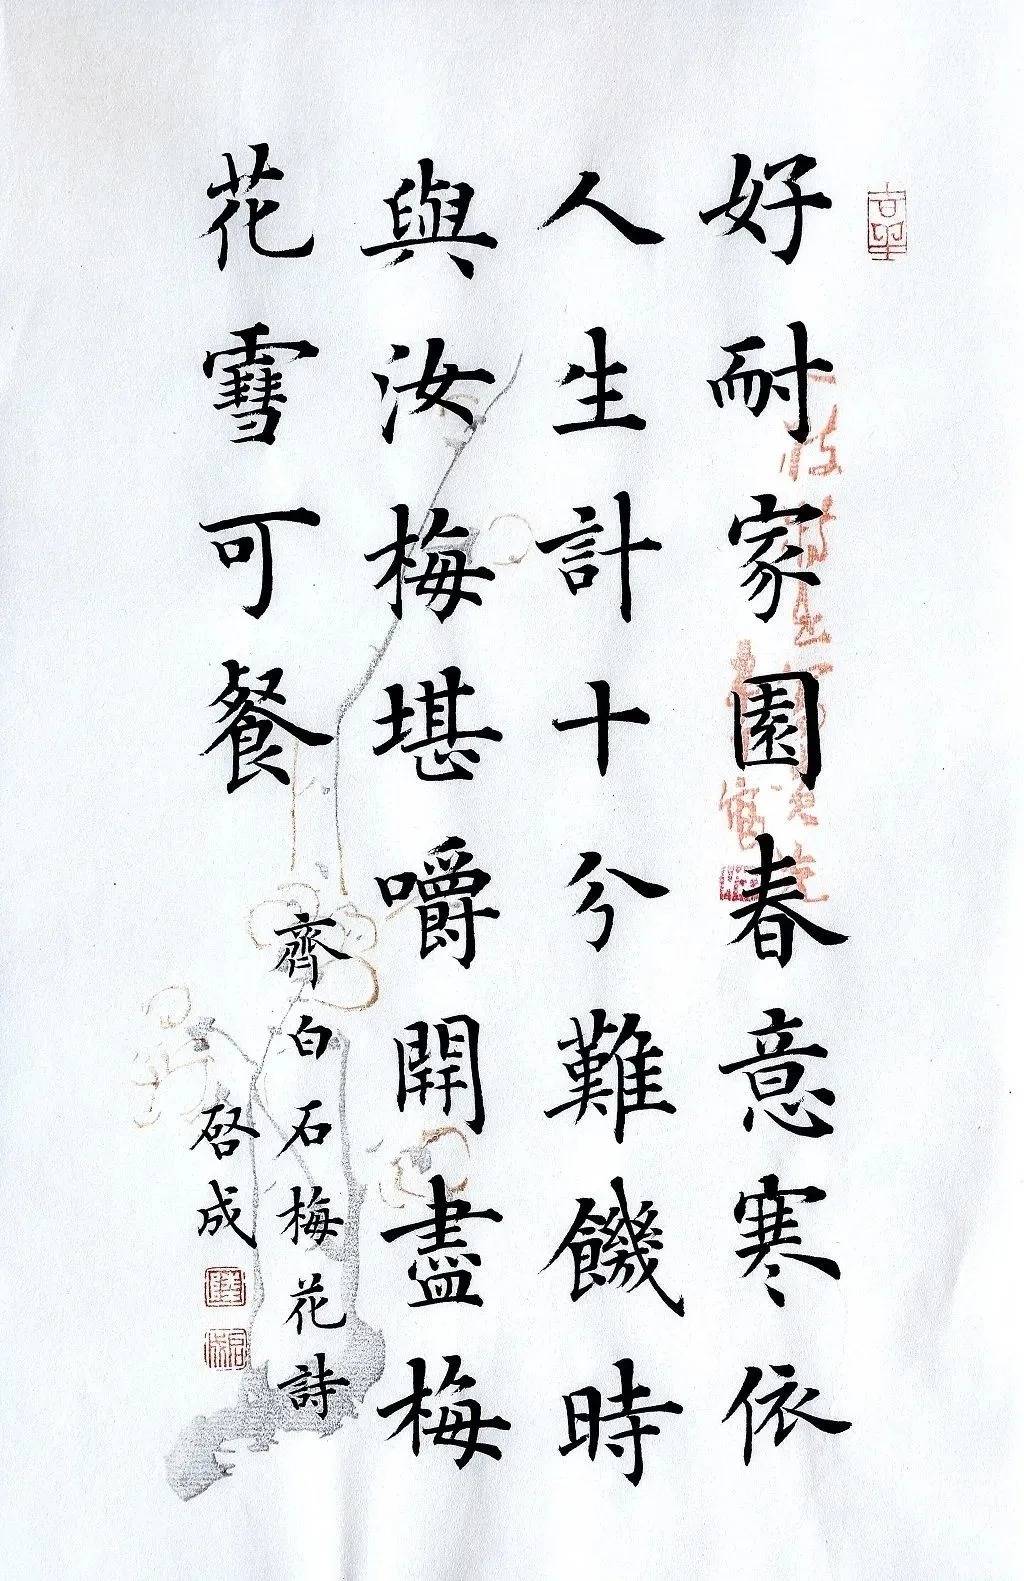 好耐家園春意寒依
人生計十分難饑時
與汝梅堪嚼開盡梅
花雪可餐
齊白石梅花詩
啓成